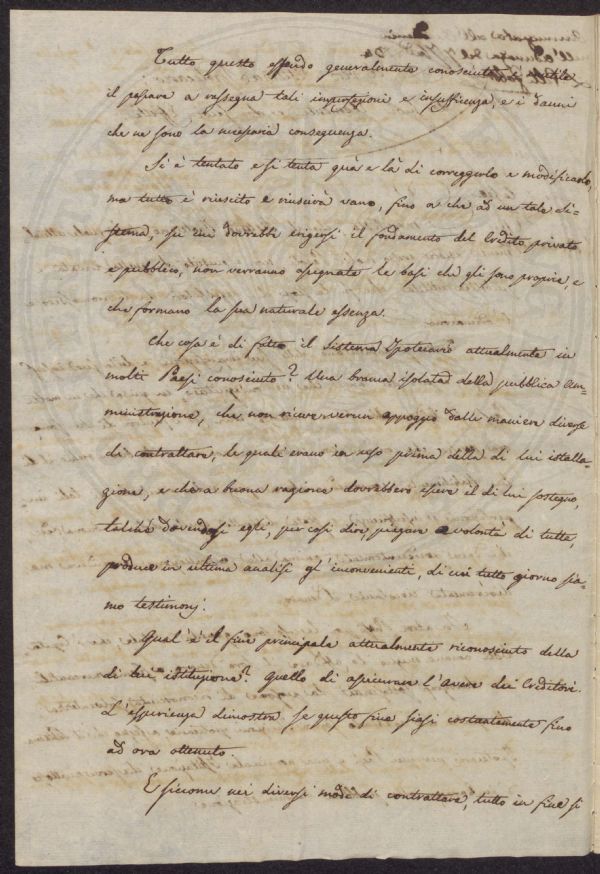 Tutto questo essendo generalmente conosciuto,
il passare a rassegna tali imperfezioni e insufficienza, e i danni
che ne sono la necessaria conseguenza.
Si è tentato e si tenta quà e là di correggerlo e modificarlo,
ma tutto è riuscito e riuscirà vano, fino a che ad un tale si-
stema, su cui dovrebbe erigersi il fondamento del Credito privato
e pubblico, non verranno assegnate le basi che gli sono proprie, e
che formano la sua naturale essenza.
Che cosa è di fatto il Sistema Ipotecario attualmente in
molti Paesi conosciuto? Una branca isolata della pubblica Am-
ministrazione, che non riceve verun appoggio dalle maniere diverse
di contrattare, le quali erano in uso prima della di lui istalla-
zione, e che a buona ragione dovrebbero essere il di lui sostegno,
talchè dovendosi egli, per così dire piegare a volontà di tutte,
produce in ultima analisi gl'inconvenienti, di cui tutto giorno sia-
mo testimonj.
Qual'è il fine principale attualmente riconosciuto della
di lui istituzione? quello di assicurare l'avere dei Creditori.
L'esperienza dimostra se questo fine siasi costantemente fino
ad ora ottenuto.
E siccome nei diversi modi di contrattare, tutto in fine si